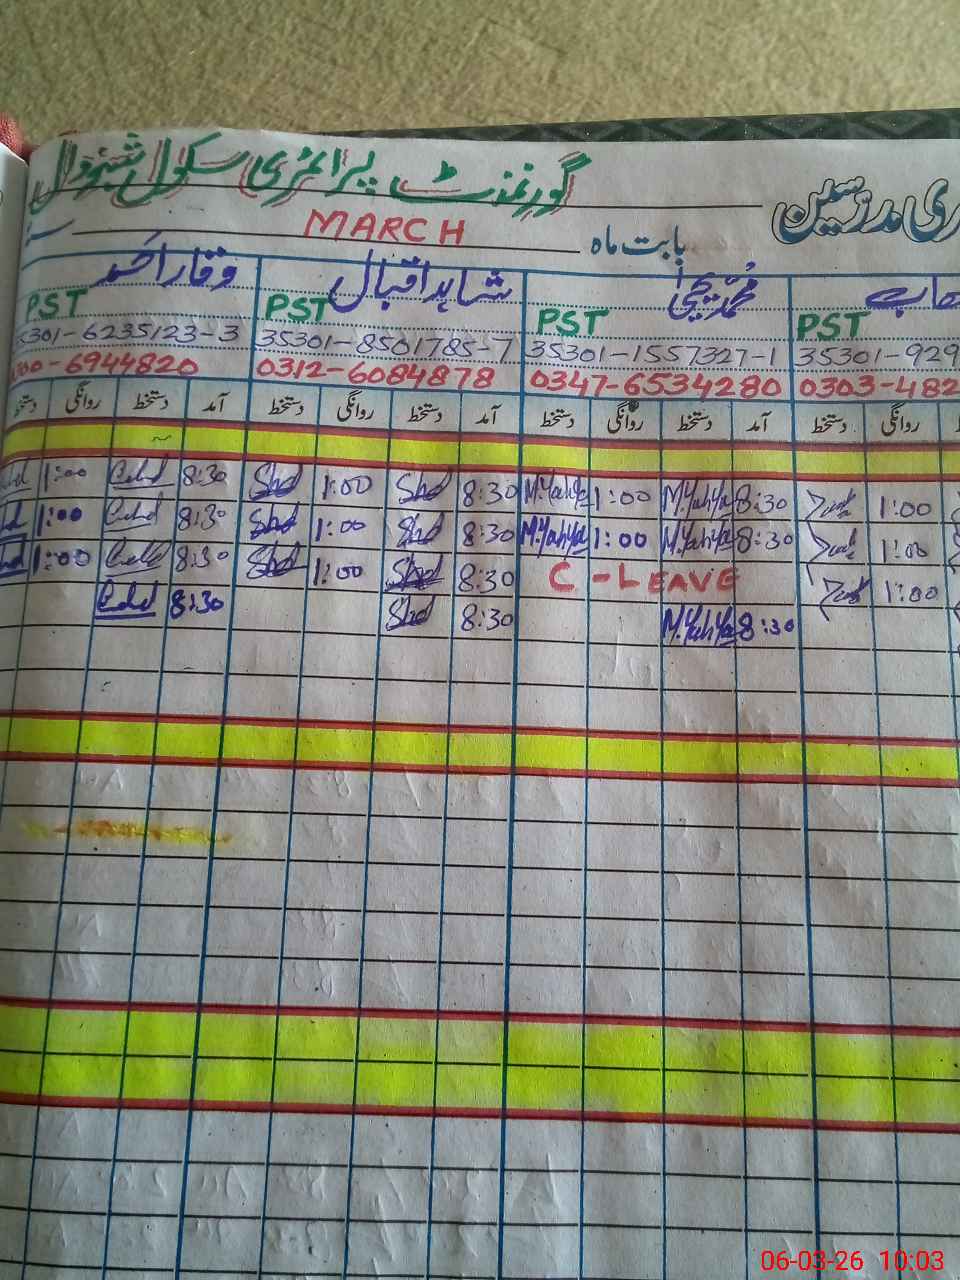 گورنمنٹ پرائمری سکول
ری مدرسین
MARCH بابت ماہ
محمد یحییٰ شاہد اقبال وقار احمد
PST PST PST PST
35301-929 35301-1557327-1 35301-8501785-7 5301-6235123-3
0303-482 0347-6534280 0312-6084878 300-6944820
روانگی دستخط آمد دستخط روانگی دستخط آمد دستخط روانگی دستخط آمد دستخط روانگی
1:00 8:30 M.Yahya 1:00 M.Yahya 8:30 Shd 1:00 Shd 8:30 1:00
1:00 8:30 M.Yahya 1:00 M.Yahya 8:30 Shd 1:00 Shd 8:30 1:00
1:00 C-LEAVE 8:30 Shd 1:00 Shd 8:30 1:00
8:30 M.Yahya 8:30 Shd 8:30
06-03-26 10:03